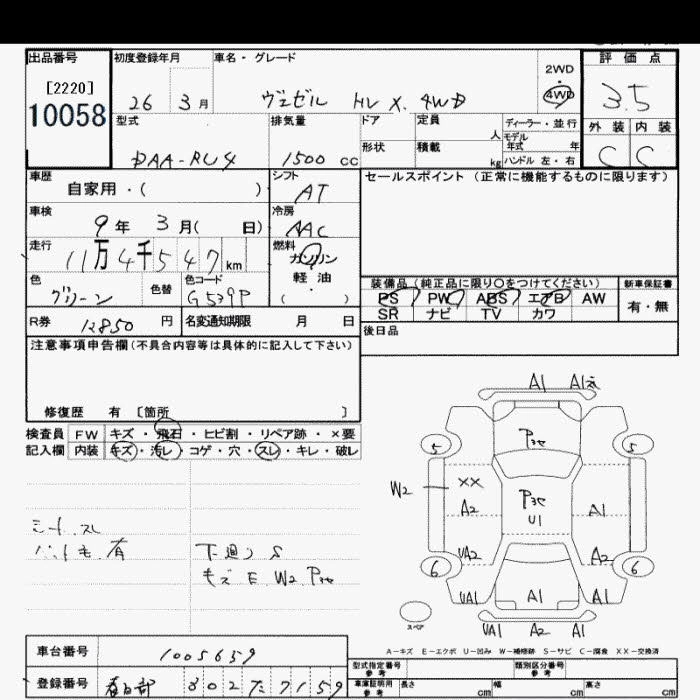 出品番号 初度登録年月 車名・グレード 2WD・4WD 評価点
[2220]
10058
26 3月 ヴェゼル HV X. 4WD 3.5
型式 排気量 ドア 定員 人 ディーラー・並行 外装 内装
モデル年式 年
DAA-RU4 1500 cc 形状 積載 kg ハンドル 左・右 C C
車歴 シフト セールスポイント (正常に機能するものに限ります)
自家用・( ) AT
車検 冷房
9年 3月( 日) AAC
走行 燃料
11万4千547km ガソリン
色 色替 色コード 軽・油
グリーン G539P ( )
装備品(純正品に限り○をつけてください) 新車保証書
PS PW ABS エアB AW 有・無
SR ナビ TV カワ
R券 12850円 名変通知期限 月 日 後日品
注意事項申告欄(不具合内容等は具体的に記入して下さい)
修復歴 有 〔箇所 〕
検査員 FW キズ・飛石・ヒビ割・リペア跡・×要
記入欄 内装 キズ・汚レ・コゲ・穴・スレ・キレ・破レ
A1 A1
5 5
W2 XX A2 U1 A1
6 UA2 A2 6
UA1 A1 A1
スペア UA1 A2 A1
シート スレ
有 下廻り S
キズ E W2
A-キズ E-エクボ U-凹み W-補修跡 S-サビ C-腐食 XX-交換済
車台番号 1005659
型式指定番号 参考 類別区分番号 参考
登録番号 春日部 302 た 7159
車庫証明用 参考 長さ cm 幅 cm 高さ cm